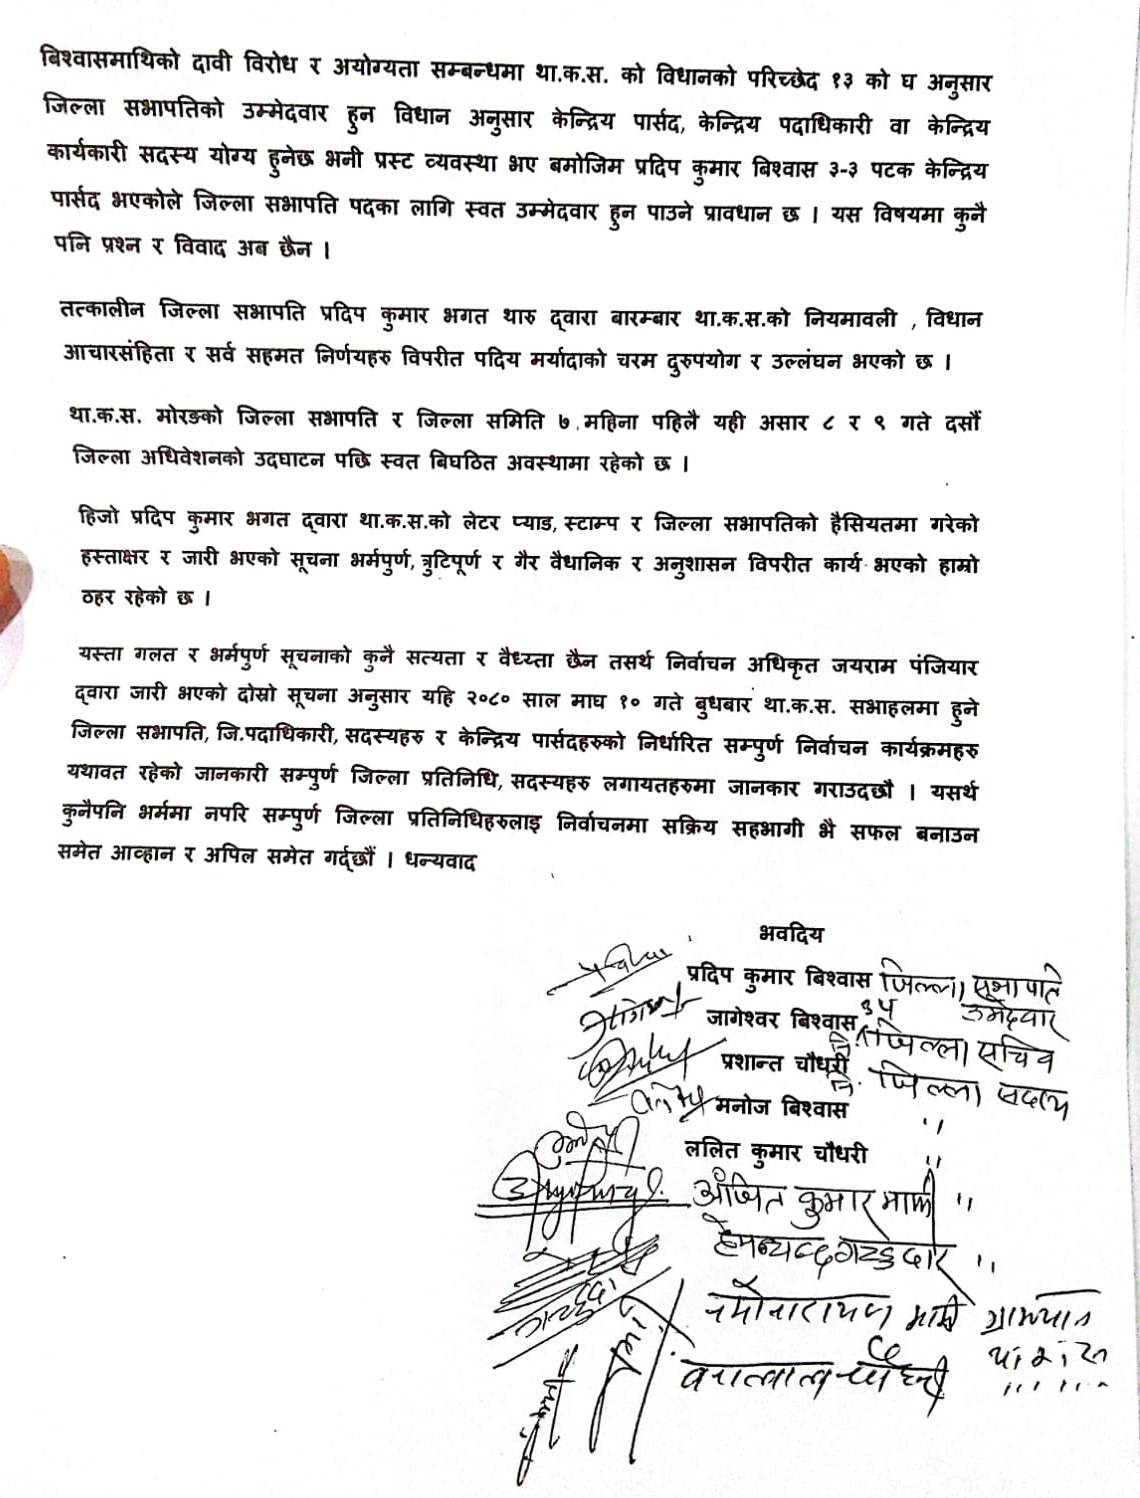 बिश्वासमाथिको दावी विरोध र अयोग्यता सम्बन्धमा था.क.स. को विधानको परिच्छेद १३ को घ अनुसार
जिल्ला सभापतिको उम्मेदवार हुन विधान अनुसार केन्द्रिय पार्सद, केन्द्रिय पदाधिकारी वा केन्द्रिय
कार्यकारी सदस्य योग्य हुनेछ भनी प्रस्ट व्यवस्था भए बमोजिम प्रदिप कुमार बिश्वास ३-३ पटक केन्द्रिय
पार्सद भएकोले जिल्ला सभापति पदका लागि स्वत उम्मेदवार हुन पाउने प्रावधान छ । यस विषयमा कुनै
पनि प्रश्न र विवाद अब छैन ।
तत्कालीन जिल्ला सभापति प्रदिप कुमार भगत थारु द्वारा बारम्बार था.क.स.को नियमावली , विधान
आचारसंहिता र सर्व सहमत निर्णयहरु विपरीत पदिय मर्यादाको चरम दुरुपयोग र उल्लंघन भएको छ ।
था.क.स. मोरङको जिल्ला सभापति र जिल्ला समिति ७ महिना पहिलै यही असार ८ र ९ गते दसौं
जिल्ला अधिवेशनको उदघाटन पछि स्वत बिघठित अवस्थामा रहेको छ ।
हिजो प्रदिप कुमार भगत द्वारा था.क.स.को लेटर प्याड, स्टाम्प र जिल्ला सभापतिको हैसियतमा गरेको
हस्ताक्षर र जारी भएको सूचना भर्मपुर्ण, त्रुटिपूर्ण र गैर वैधानिक र अनुशासन विपरीत कार्य भएको हाम्रो
ठहर रहेको छ ।
यस्ता गलत र भर्मपुर्ण सूचनाको कुनै सत्यता र वैध्य्ता छैन तसर्थ निर्वाचन अधिकृत जयराम पंजियार
द्वारा जारी भएको दोस्रो सूचना अनुसार यहि २०८० साल माघ १० गते बुधबार था.क.स. सभाहलमा हुने
जिल्ला सभापति, जि.पदाधिकारी, सदस्यहरु र केन्द्रिय पार्सदहरुको निर्धारित सम्पुर्ण निर्वाचन कार्यक्रमहरु
यथावत रहेको जानकारी सम्पुर्ण जिल्ला प्रतिनिधि, सदस्यहरु लगायतहरुमा जानकार गराउदछौ । यसर्थ
कुनैपनि भर्ममा नपरि सम्पुर्ण जिल्ला प्रतिनिधिहरुलाइ निर्वाचनमा सक्रिय सहभागी भै सफल बनाउन
समेत आव्हान र अपिल समेत गर्द्छौं । धन्यवाद
भवदिय
प्रदिप कुमार बिश्वास जिल्ला सभापति
उमेदवार
जागेश्वर बिश्वास उप
प्रशान्त चौधरी नि. जिल्ला सचिव
मनोज बिश्वास नि. जिल्ला सदस्य
ललित कुमार चौधरी "
अजित कुमार माझी "
"
नमोनारायण माझी ग्रामथान
चौधरी